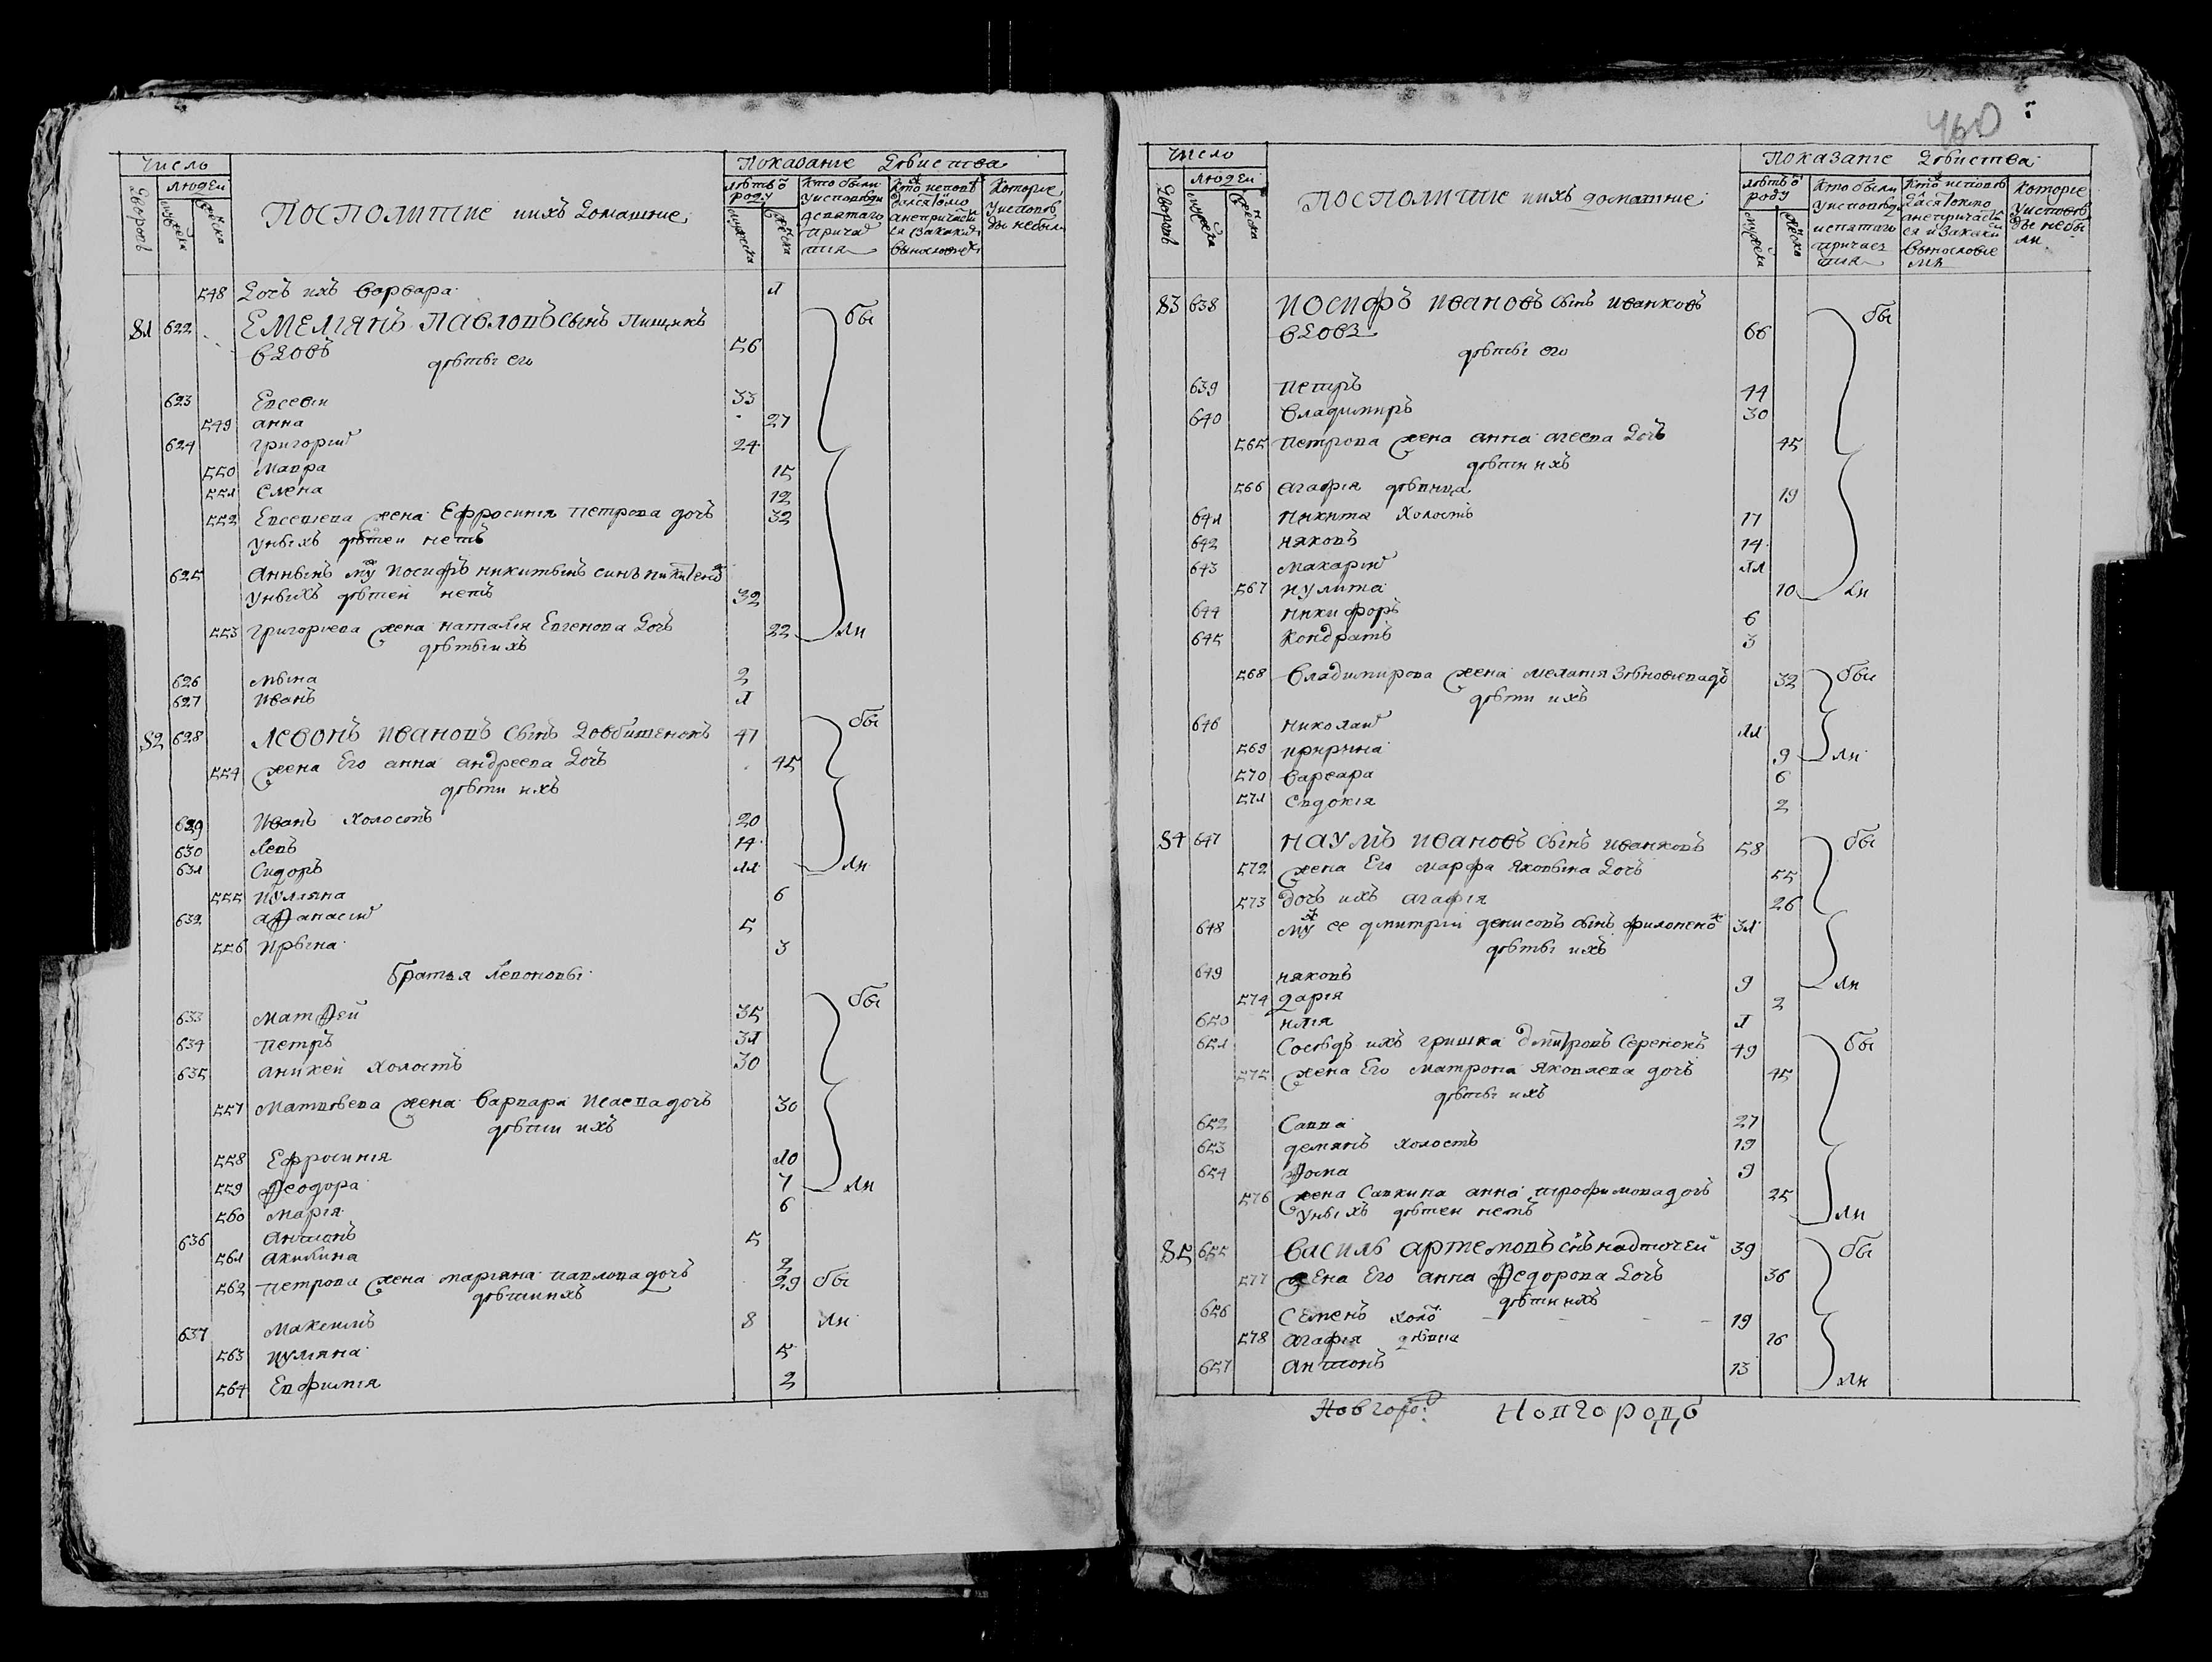 Число
Показание Действа
Дворовъ
людеи
мужеска
женска
Посполитие ихъ домашние
летъ ѿ роду
мужеска
женска
кто были у исповеди и святаго причастия
Которие у исповеди не были
548 Дочь ихъ варвара 1
81 622 Емелиянъ Павловъ сынъ Пищикъ
вдовъ 56 бы
дѣты его
623 Евсеви 33
549 анна 27
624 григории 24
550 Мавра 15
551 Елена 12
552 Евсевиева жена Ефросиния петрова дочь 32
у ныхъ дѣтеи нетъ
625 Аннынъ му иосифъ никитынъ синъ
у ныхъ дѣтеи нетъ 32
553 григориева жена наталия Евгенова дочь 22 ли
дѣты ихъ
626 мына 2
627 иванъ 1
82 628 Левонъ ивановъ сынъ довбишенокъ 47 бы
554 жена Его анна андреева дочь 45
дѣти ихъ
629 иванъ холостъ 20
630 Левъ 14
631 Сидоръ 11 ли
555 иулияна 6
632 аѳанасии 5
556 ирына 3
братья Левоновы
633 матѳеи 35 бы
634 петръ 31
635 аникеи холостъ 30
557 Матвѣева жена варвара исаева дочь 30
дѣти ихъ
558 Ефросиния 10
559 Ѳеодора 7 ли
560 мария 6
636 Антонъ 5
561 акилина 2
562 петрова жена марияна павлова дочь 29 бы
дѣти ихъ
637 Максимъ 8 ли
563 иулияна 5
564 Евфимия 2
460
Число
Показание Действа
Дворовъ
людеи
мужеска
женска
Посполитие ихъ домашние
летъ ѿ роду
мужеска
женска
Кто были у исповеди и святаго причастия
Которие у исповеди не были
83 638 иосифъ ивановъ сынъ иванковъ
вдовъ 66 бы
дѣты его
639 петръ 44
640 владимиръ 30
565 петрова жена анна агеева дочь 45
дѣти ихъ
566 агафия дѣвица 19
641 никита холостъ 17
642 ияковъ 14
643 макарии 11
567 иулита 10 ли
644 никифоръ 6
645 кондратъ 3
568 владимирова жена мелания Зѣновиева до 32 бы
дѣти ихъ
646 николаи 11
569 иририна 9 ли
570 варвара 6
571 Евдокия 2
84 647 наумъ ивановъ сынъ иванковъ 58 бы
572 жена Его марфа яковына дочь 55
573 дочь ихъ агафия 26
648 му ее дмитрии денисовъ сынъ филоненко 31
дѣты ихъ
649 ияковъ 9 ли
574 дария 2
650 илия 1
651 Соседъ ихъ гришка дмитровъ Середонъ 49 бы
575 жена Его матрона яковлева дочь 45
дѣты ихъ
652 Савва 27
653 демянъ холостъ 19
654 Ѳома 9
576 жена Савкина анна трофимова дочь 25
у ныхъ дѣтеи нетъ ли
85 655 василь артемовъ снъ надточеи 39 бы
577 жена Его анна Ѳедорова дочь 36
дѣти ихъ
656 Семенъ холо 19
578 агафия дѣвица 16
657 антонъ 13 ли
Новгоро. Новгородъ